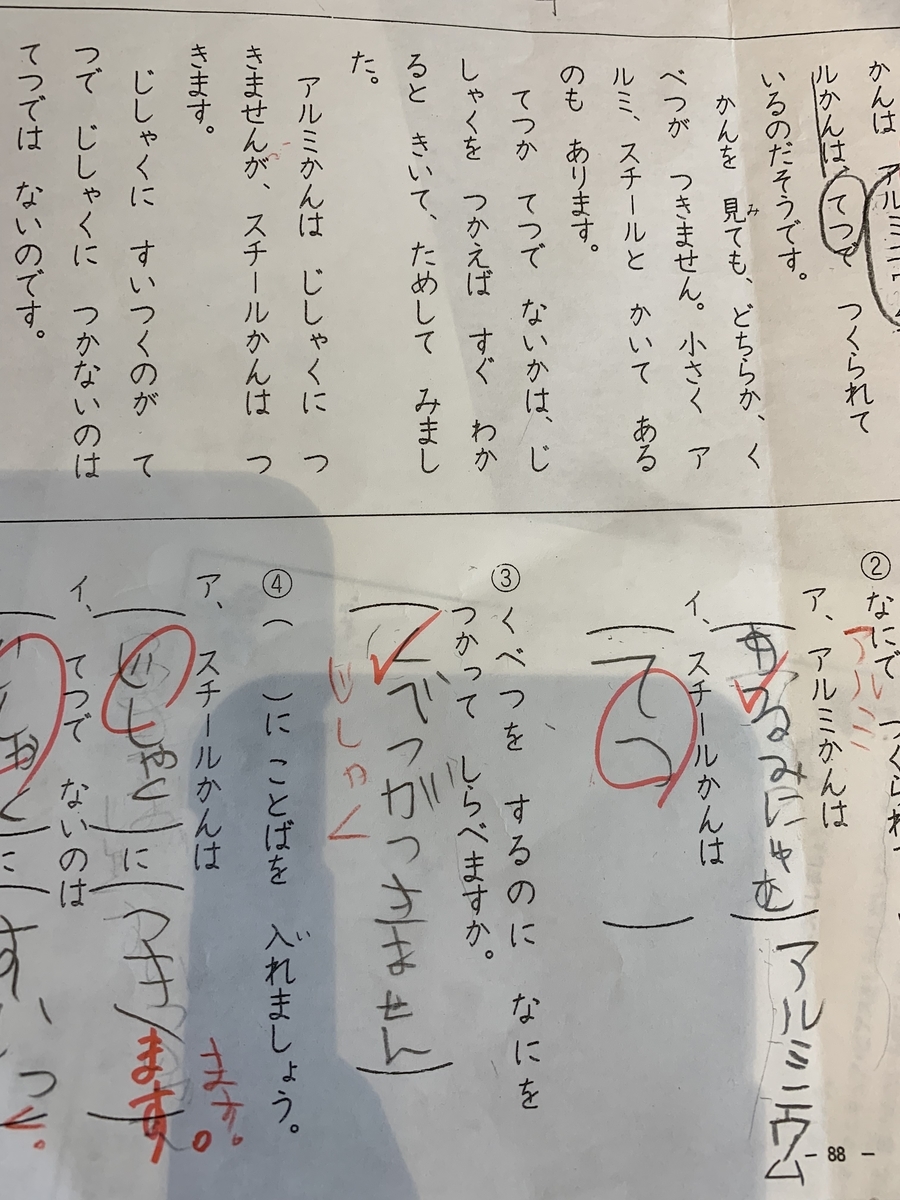 かんは アルミニウム
ルかんは、てつで つくられて
いるのだそうです。
かんを 見ても、どちらか、く
み
べつが つきません。小さく ア
ルミ、スチールと かいて ある
のも あります。
てつか てつで ないかは、じ
しゃくを つかえば すぐ わか
ると きいて、ためして みまし
た。
アルミかんは じしゃくに つ
きませんが、スチールかんは つ
きます。
じしゃくに すいつくのが て
つで じしゃくに つかないのは
てつでは ないのです。
② なにで つくられて
ア、アルミかんは
アルミ
あるみにゃむ
アルミニウム
イ、スチールかんは
てつ
③ くべつを するのに なにを
つかって しらべますか。
べつがつきません
じしゃく
④ ( )に ことばを 入れましょう。
い
ア、スチールかんは
(じしゃく)に(つき)
ます。
ます。
イ、てつで ないのは
に
すいつ
く。
- 88 -